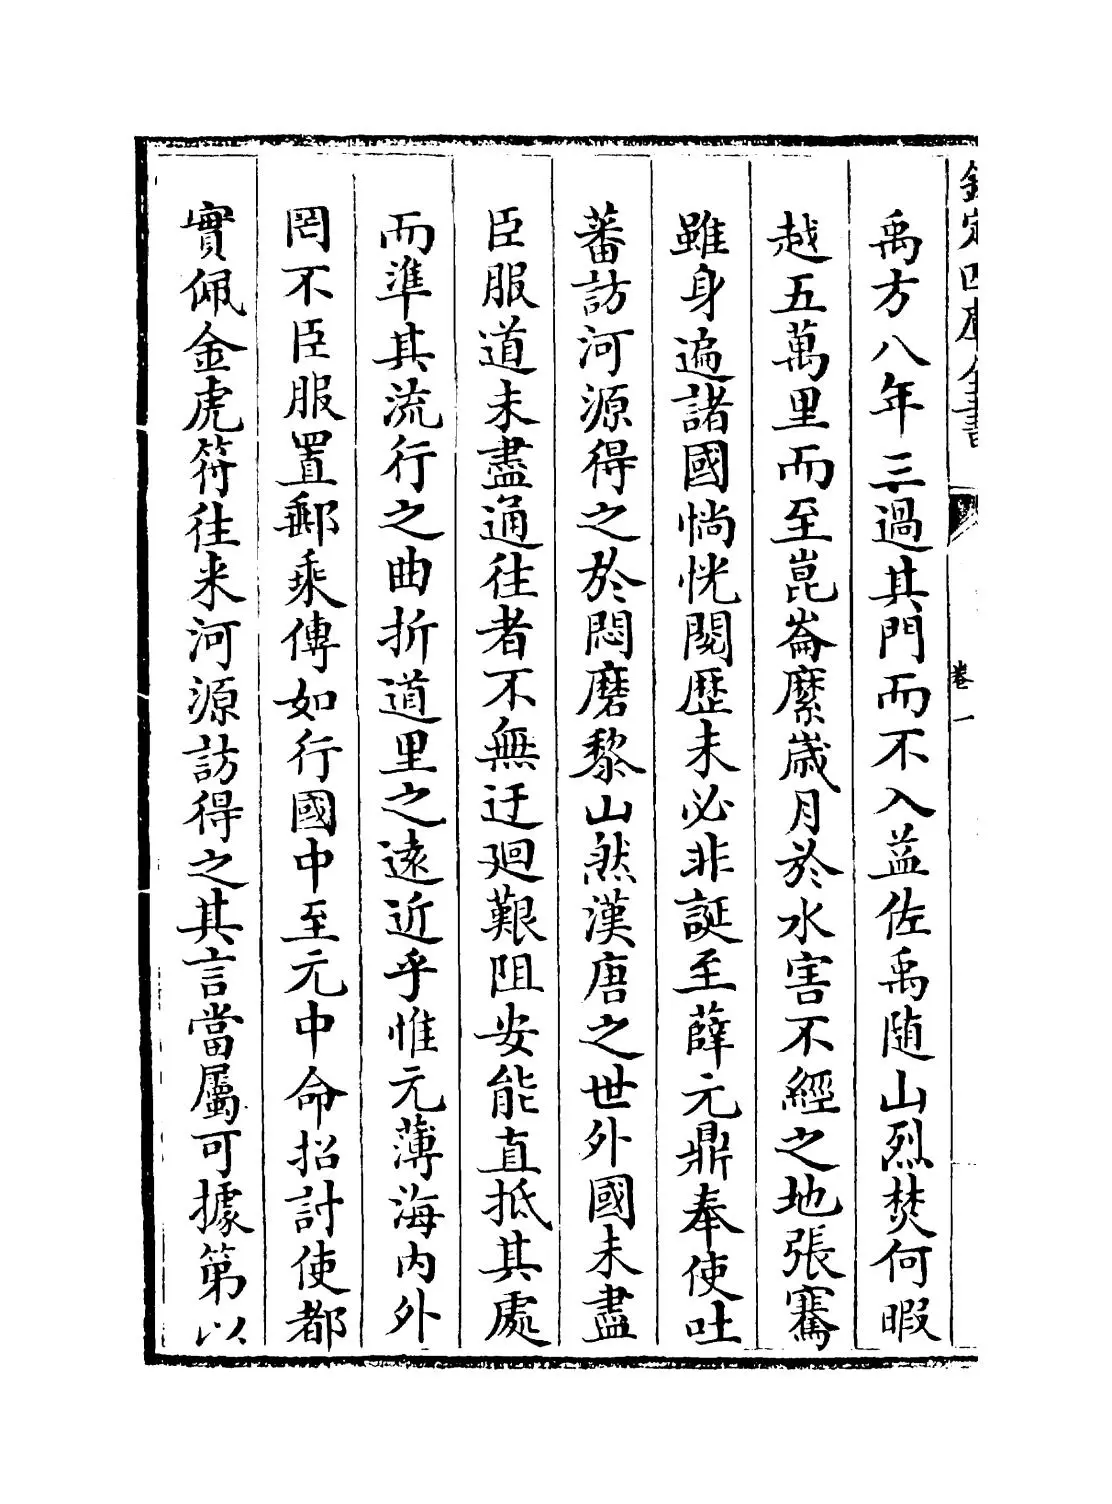 欽定四庫全書
卷一
禹方八年三過其門而不入益佐禹随山烈焚何暇
越五萬里而至崑崙縻歲月於水害不經之地張騫
雖身遍諸國惝恍閱歷未必非誕至薛元鼎奉使吐
蕃訪河源得之於悶磨黎山然漢唐之世外國未盡
臣服道未盡通往者不無迂廻艱阻安能直抵其處
而準其流行之曲折道里之遠近乎惟元薄海内外
罔不臣服置郵乘傳如行國中至元中命招討使都
實佩金虎符往来河源訪得之其言當屬可據第以